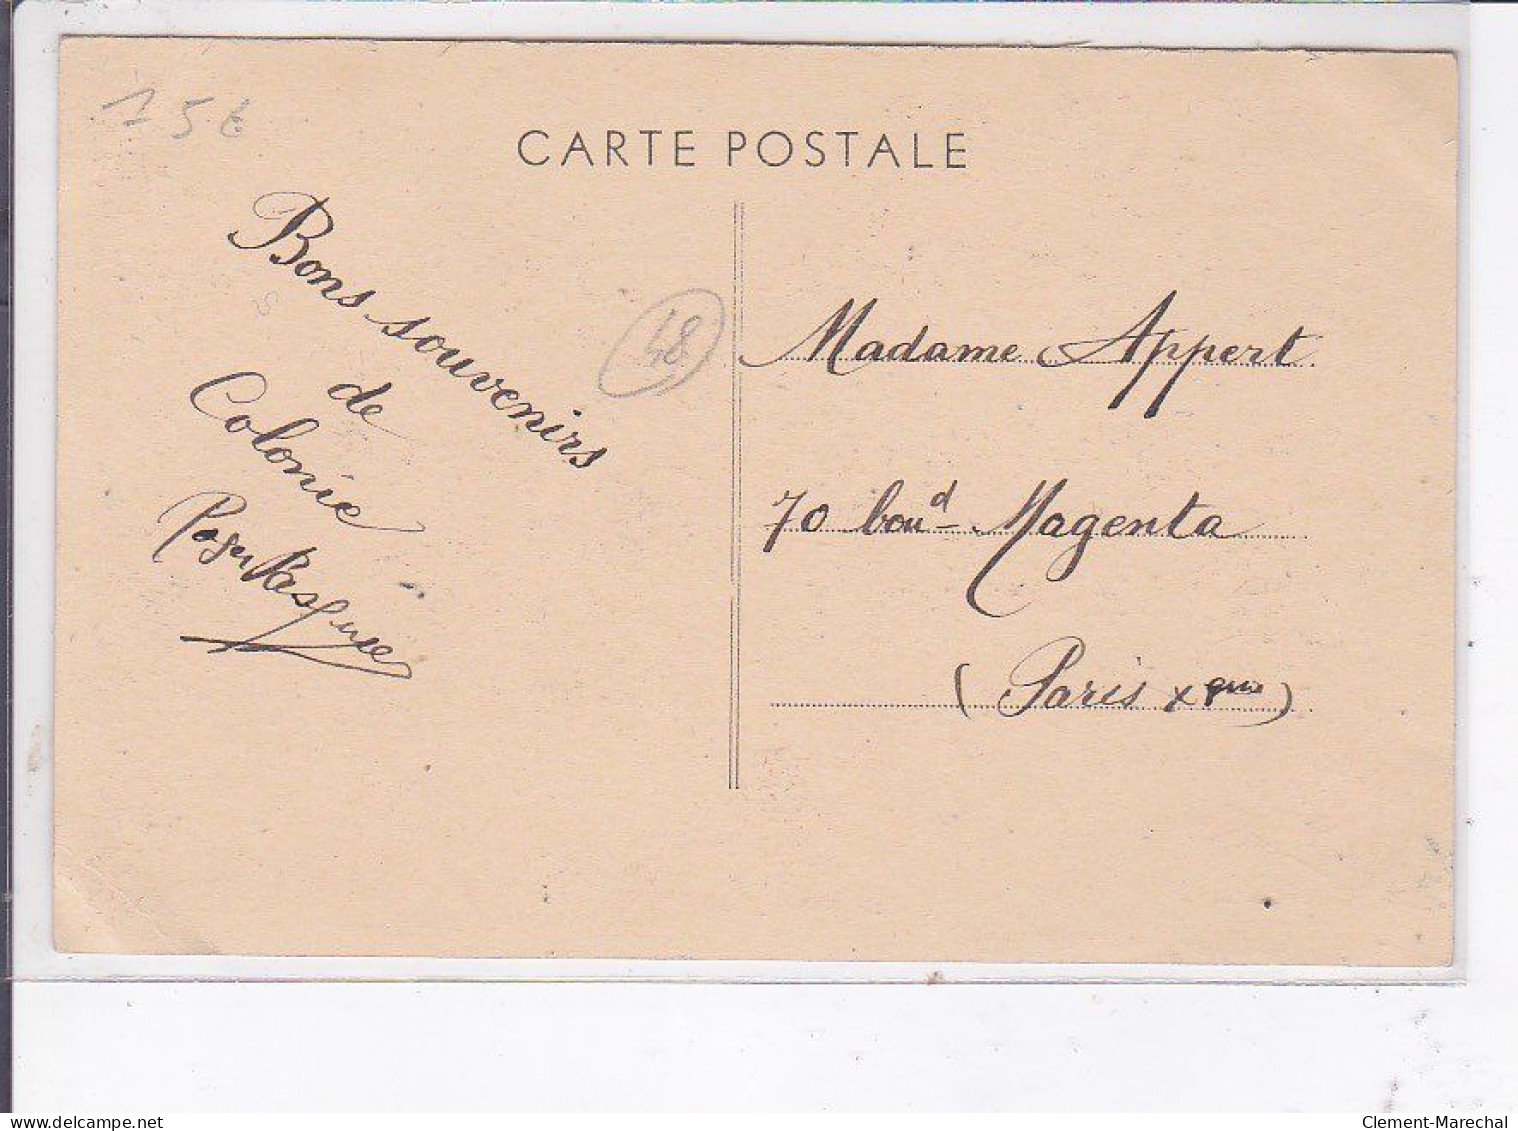 15€
CARTE POSTALE
Bons souvenirs
de
Colonie
48
Madame Appert
70 boud Magenta
(Paris X)
delcampe.net
Clement-Marechal